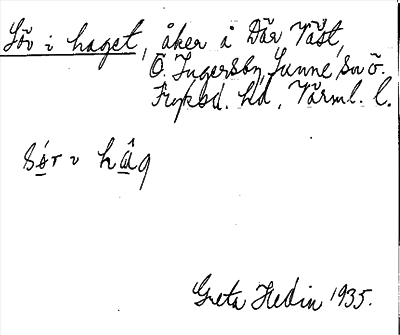 Söv i haget, åker å Där Väst,
Ö. Ingersby, Sunne sn ö.
Fryksd. hd, Värml. l.
i hâg
Greta Hedin 1935.